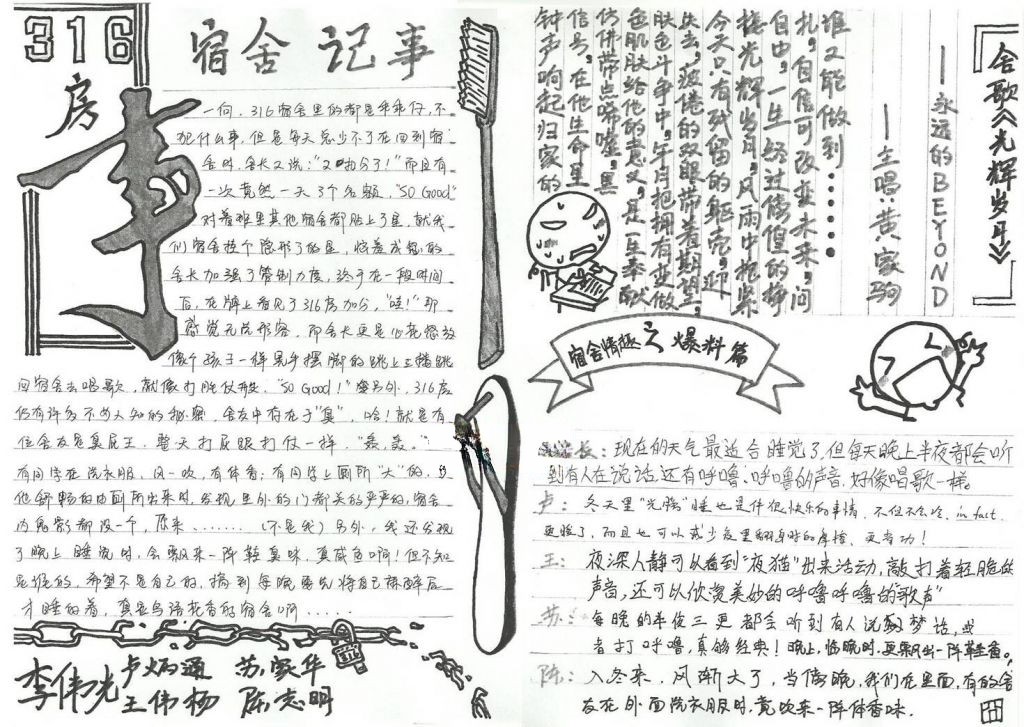 316
房
事
宿舍 记事
一向,316宿舍里的都是乖乖仔,不
犯什么事,但是每天总少不了在回到宿
舍时,舍长又说:"又扣分了!"而且有
一次竟然一天3个名额,"SO Good"
对着班里其他宿舍都贴上了星,就我
们宿舍挂个隐形了的星,
舍长加强了管制力度,终于在一段时间
后,在牌上看见了316房加分,"哇!"那
感觉无法形容,而舍长更是心花怒放
像个孩子一样具手摆脚的跳上
回宿舍去唱歌,就像打胜仗般,"SO Good!"另外,316房
仍有许多不为人知的秘密,舍友中存在于"臭",哈!就是有
位舍友是臭屁王,整天打屁跟打仗一样,
有同学在洗衣服,风一吹,有体香;有同学上厕所"大"的,当
他舒畅的由厕所出来时,发现里外的门都关的严严的,宿舍
内离家都没一个,原来.......(不是我)另外,我还发现
了晚上睡觉时,会飘来一阵鞋臭味,真咸鱼啊!但不知
是谁的,希望不是自己的,搞到每晚要先将自己
才睡的着,真是鸟语花香的宿舍啊.....
李伟光 卢炳通 苏家华
王伟杨 陈志明
舍歌《光辉岁月》
——永远的BEYOND
——主唱:黄家驹
钟声响起归家的
信号,在他生命里
仿佛带点唏嘘,黑
色肌肤给他的意义,是一生奉献
肤色斗争中,年月把拥有变做
失去,疲倦的双眼带着期望,
今天只有残留的躯壳,迎
接光辉岁月,风雨中抱紧
自由,一生经过傍徨的挣
扎,自信可改变未来,问
谁又能做到......
宿舍情趣之爆料篇
长:现在的天气最适合睡觉了,但每天晚上半夜都会听
到有人在说话,还有呼噜、呼噜的声音,好像唱歌一样。
卢:冬天里"光膀"睡也是件很快乐的事情,不但不会冷,in fact,
更暖了,而且也可以减少夜里翻身时的摩擦,更省功!
王:夜深人静可以看到"夜猫"出来活动,敲打着轻脆的
声音,还可以欣赏美妙的呼噜呼噜的"歌声"
苏:每晚的半夜三更都会听到有人说梦话,或
者打呼噜,真够经典!晚上,临晚时,更飘出一阵鞋香。
陈:入冬来,风渐大了,当傍晚,我们在里面,有的舍
友在外面洗衣服时,竟吹来一阵体香味.